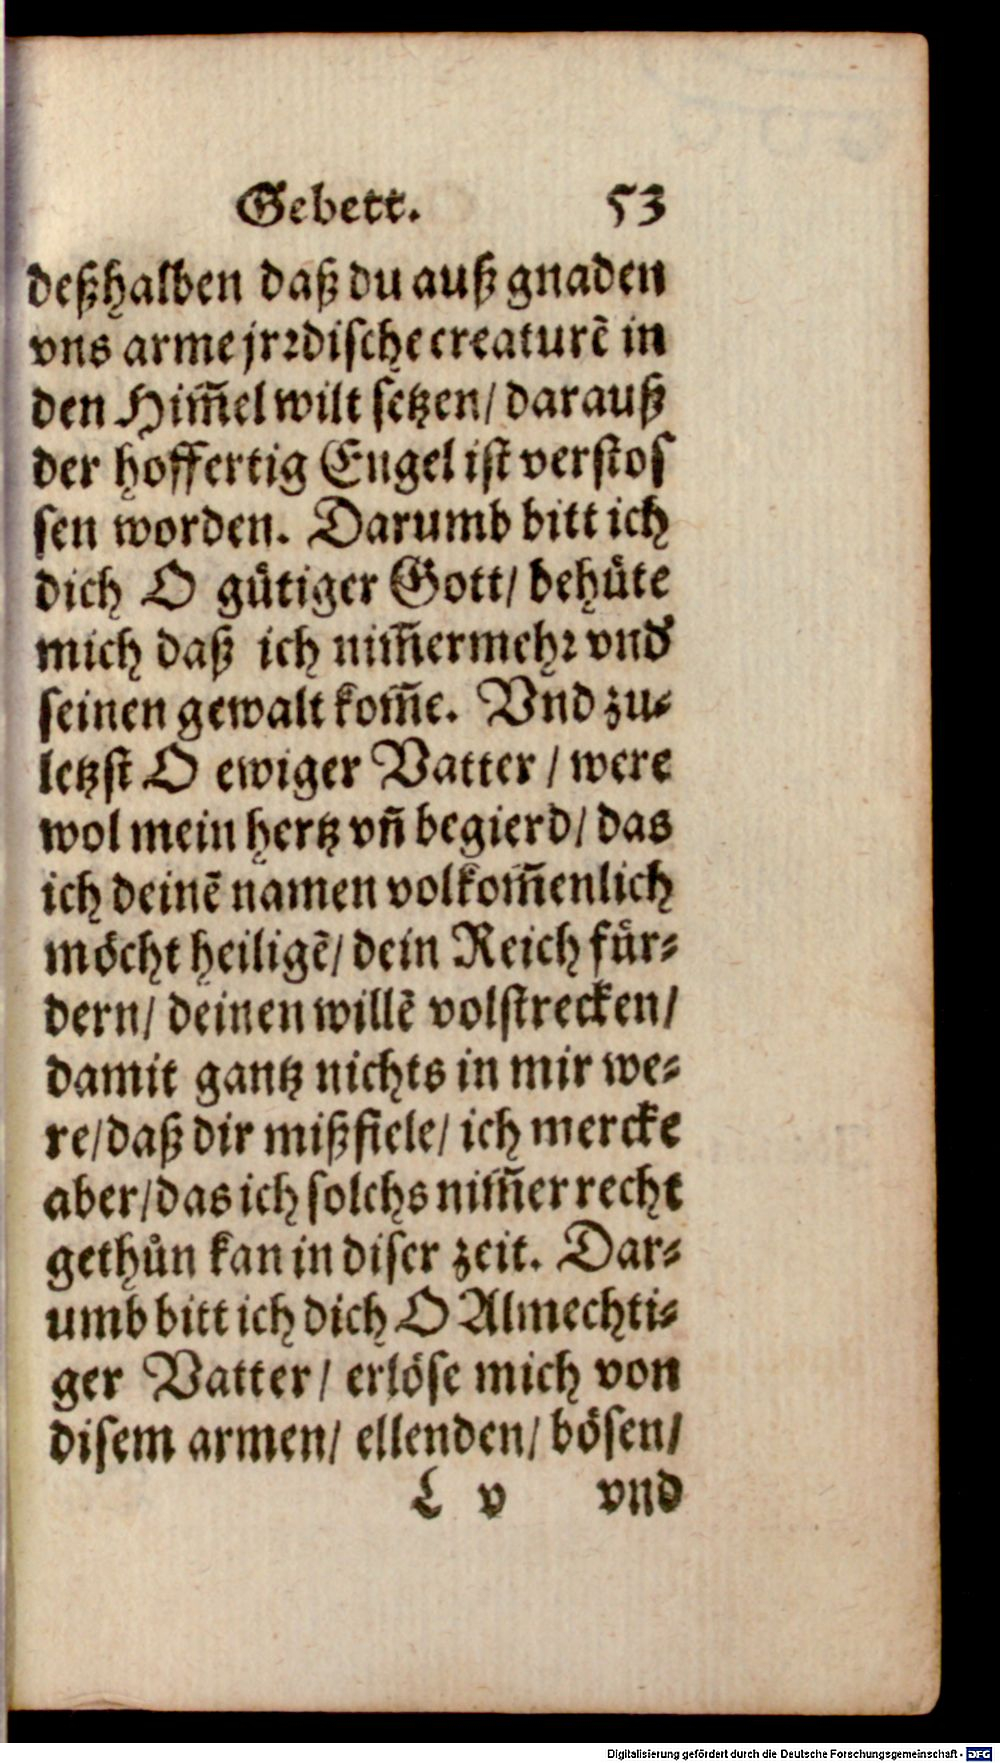 Gebett. 53
deßhalben daß du auß gnaden
vns arme jrꝛdische creaturē in
den Him̄el wilt setzen/ darauß
der hoffertig Engel ist verstos
sen worden. Darumb bitt ich
dich O gütiger Gott/ behüte
mich daß ich nim̄ermehꝛ vnd
seinen gewalt kom̄e. Vnd zu⸗
letzst O ewiger Vatter / were
wol mein hertz vn̄ begierd/ das
ich deinē namen volkom̄enlich
möcht heiligē/ dein Reich für⸗
dern/ deinen willē volstrecken/
damit gantz nichts in mir we⸗
re/ daß dir mißfiele/ ich mercke
aber/ das ich solchs nim̄er recht
gethůn kan in diser zeit. Dar⸗
umb bitt ich dich O Almechti⸗
ger Vatter/ erlöse mich von
disem armen/ ellenden/ bösen/
L v vnd
Digitalisierung gefördert durch die Deutsche Forschungsgemeinschaft - DFG